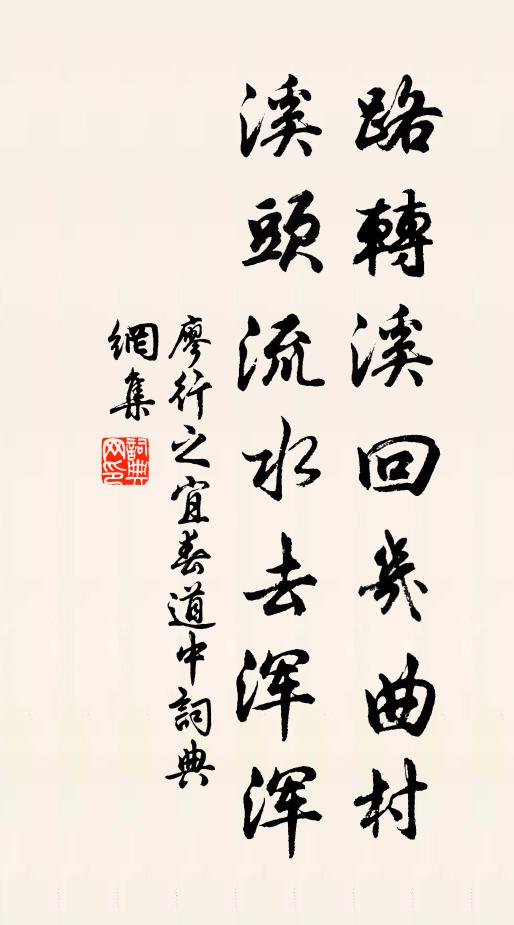 路轉溪回幾曲村
溪頭流水去浑浑
廖行之宜春道中詞典
網集
詞典网印